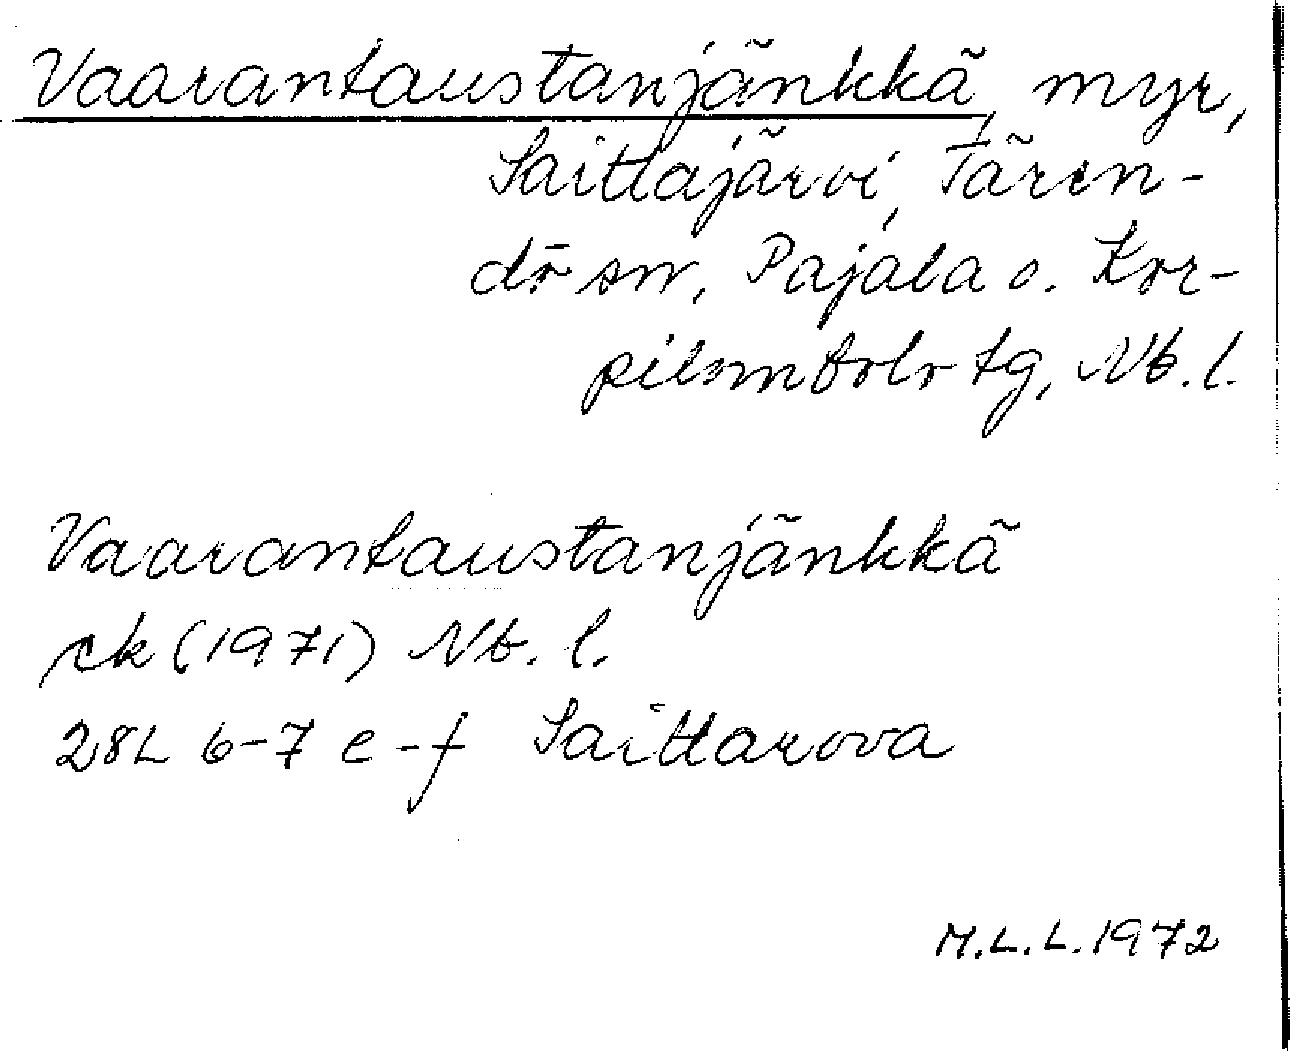 Vaarantaustanjänkkä, myr,
Saittajärvi, Tären-
dö sn, Pajala o. Kor-
pilombolo tg, Nb. l.
Vaarantaustanjänkkä
rk (1971) Nb. l.
28L 6-7 e-f Saittarova
M.L.L. 1972